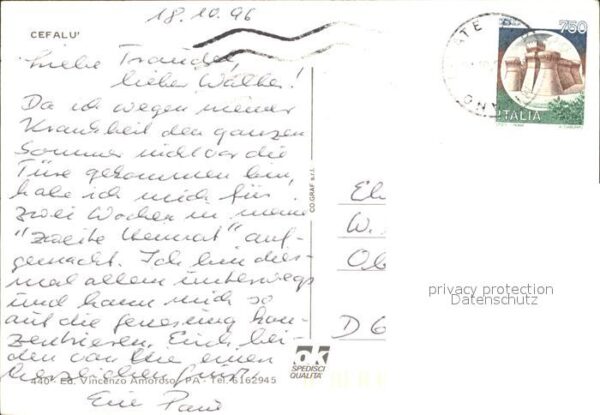 18.10.96
CEFALU'
Liebe Traudel,
lieber Walther!
Da ich wegen meiner
Krankheit den ganzen
Sommer nicht vor die
Türe gekommen bin,
habe ich mich für
zwei Wochen in meine
"zweite Heimat" auf-
gemacht. Ich bin dies-
mal allein unterwegs
und kann mich so
auf die Genesung kon-
zentrieren. Euch bei-
den von hier einen
herzlichen Gruß
440 - Ed. Vincenzo Amoroso - PA - Tel. 6162945
CO.GRAF s.r.l.
ok
SPEDISCI
QUALITA'
750
ITALIA
El
W.
Ob
D 6
privacy protection
Datenschutz